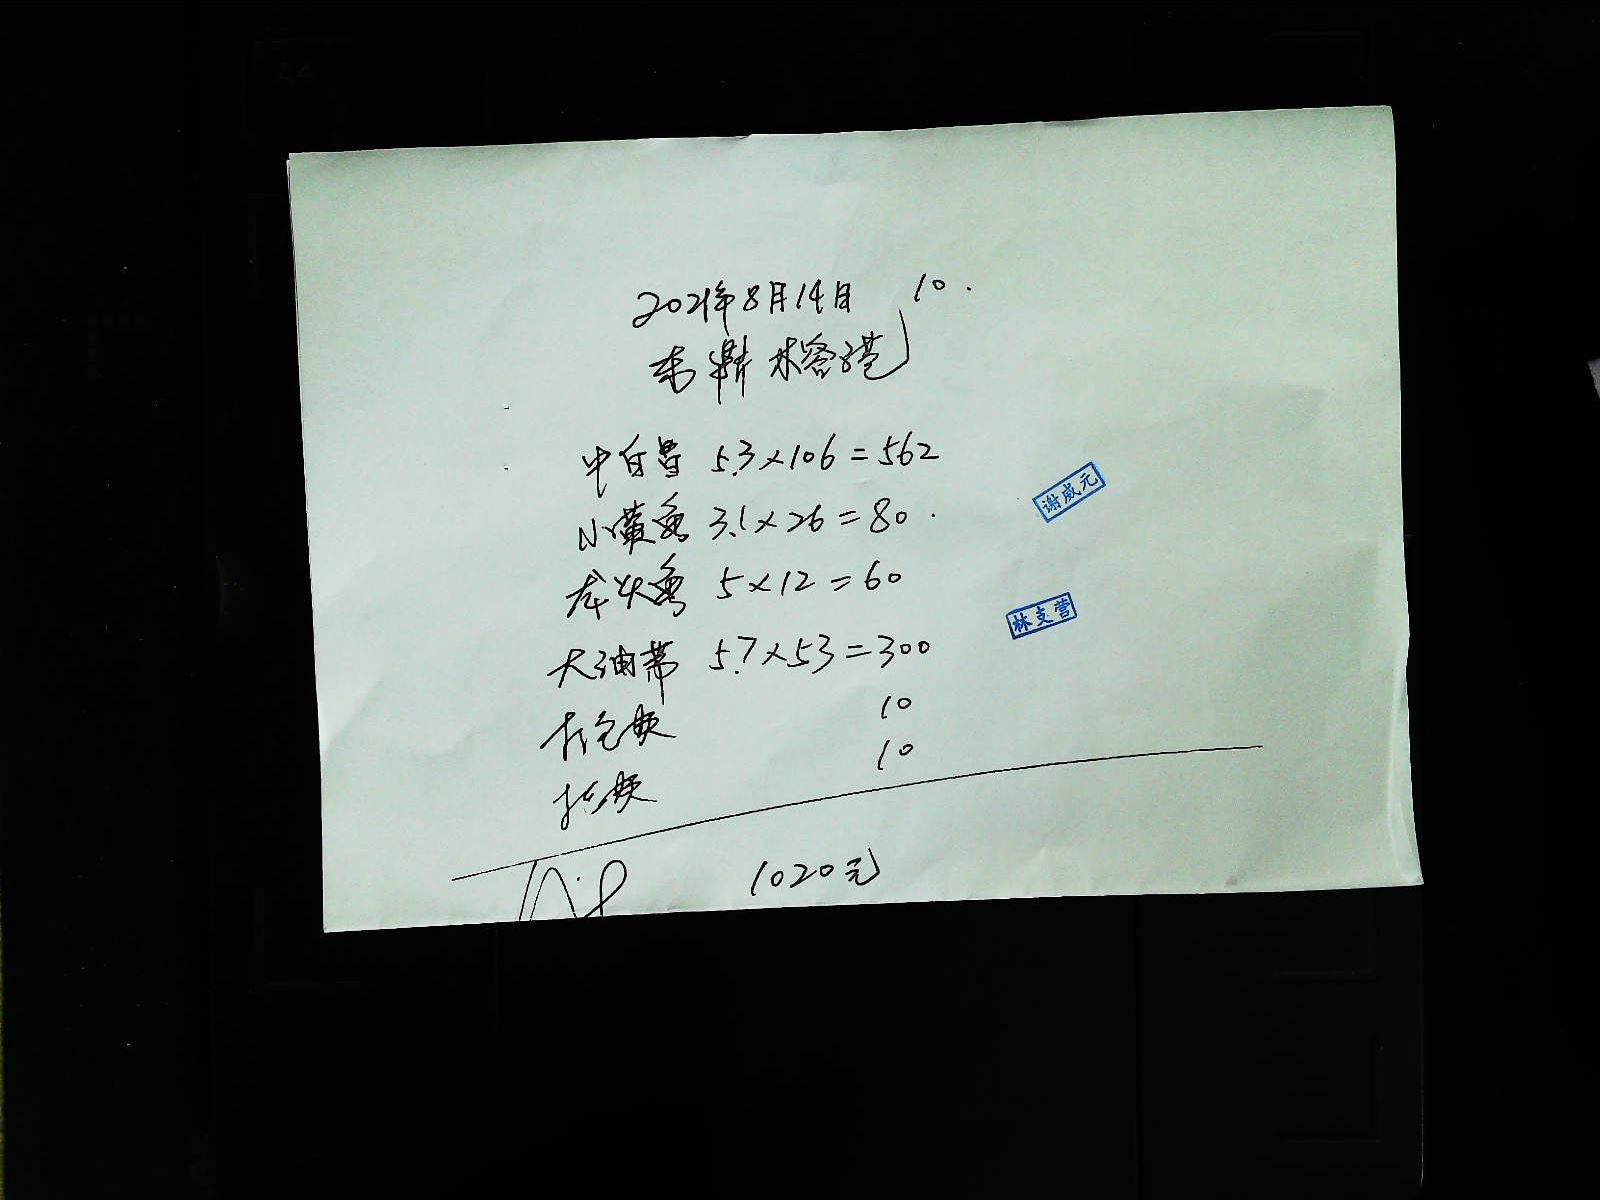 2021年8月14日 10.
中白鲳 5.3×106=562
小黄鱼 3.1×26=80.
龙头鱼 5×12=60
大油带 5.7×53=300
打包费 10
10
1020元
谢威元
林支营